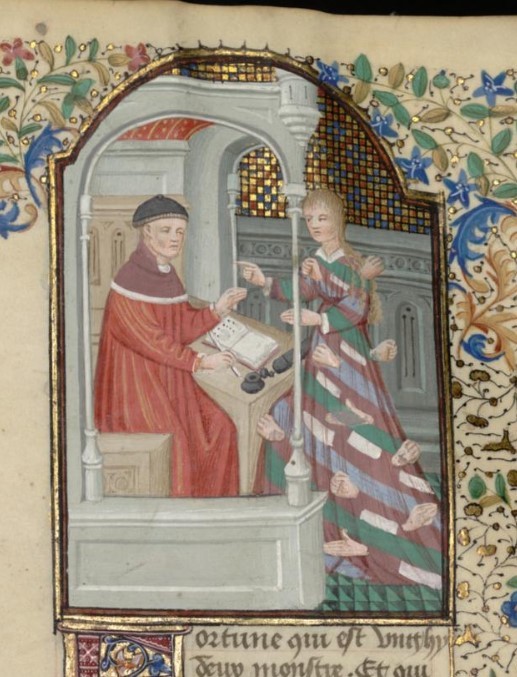 ortune qui est vng hy
deux monstre. Et qui